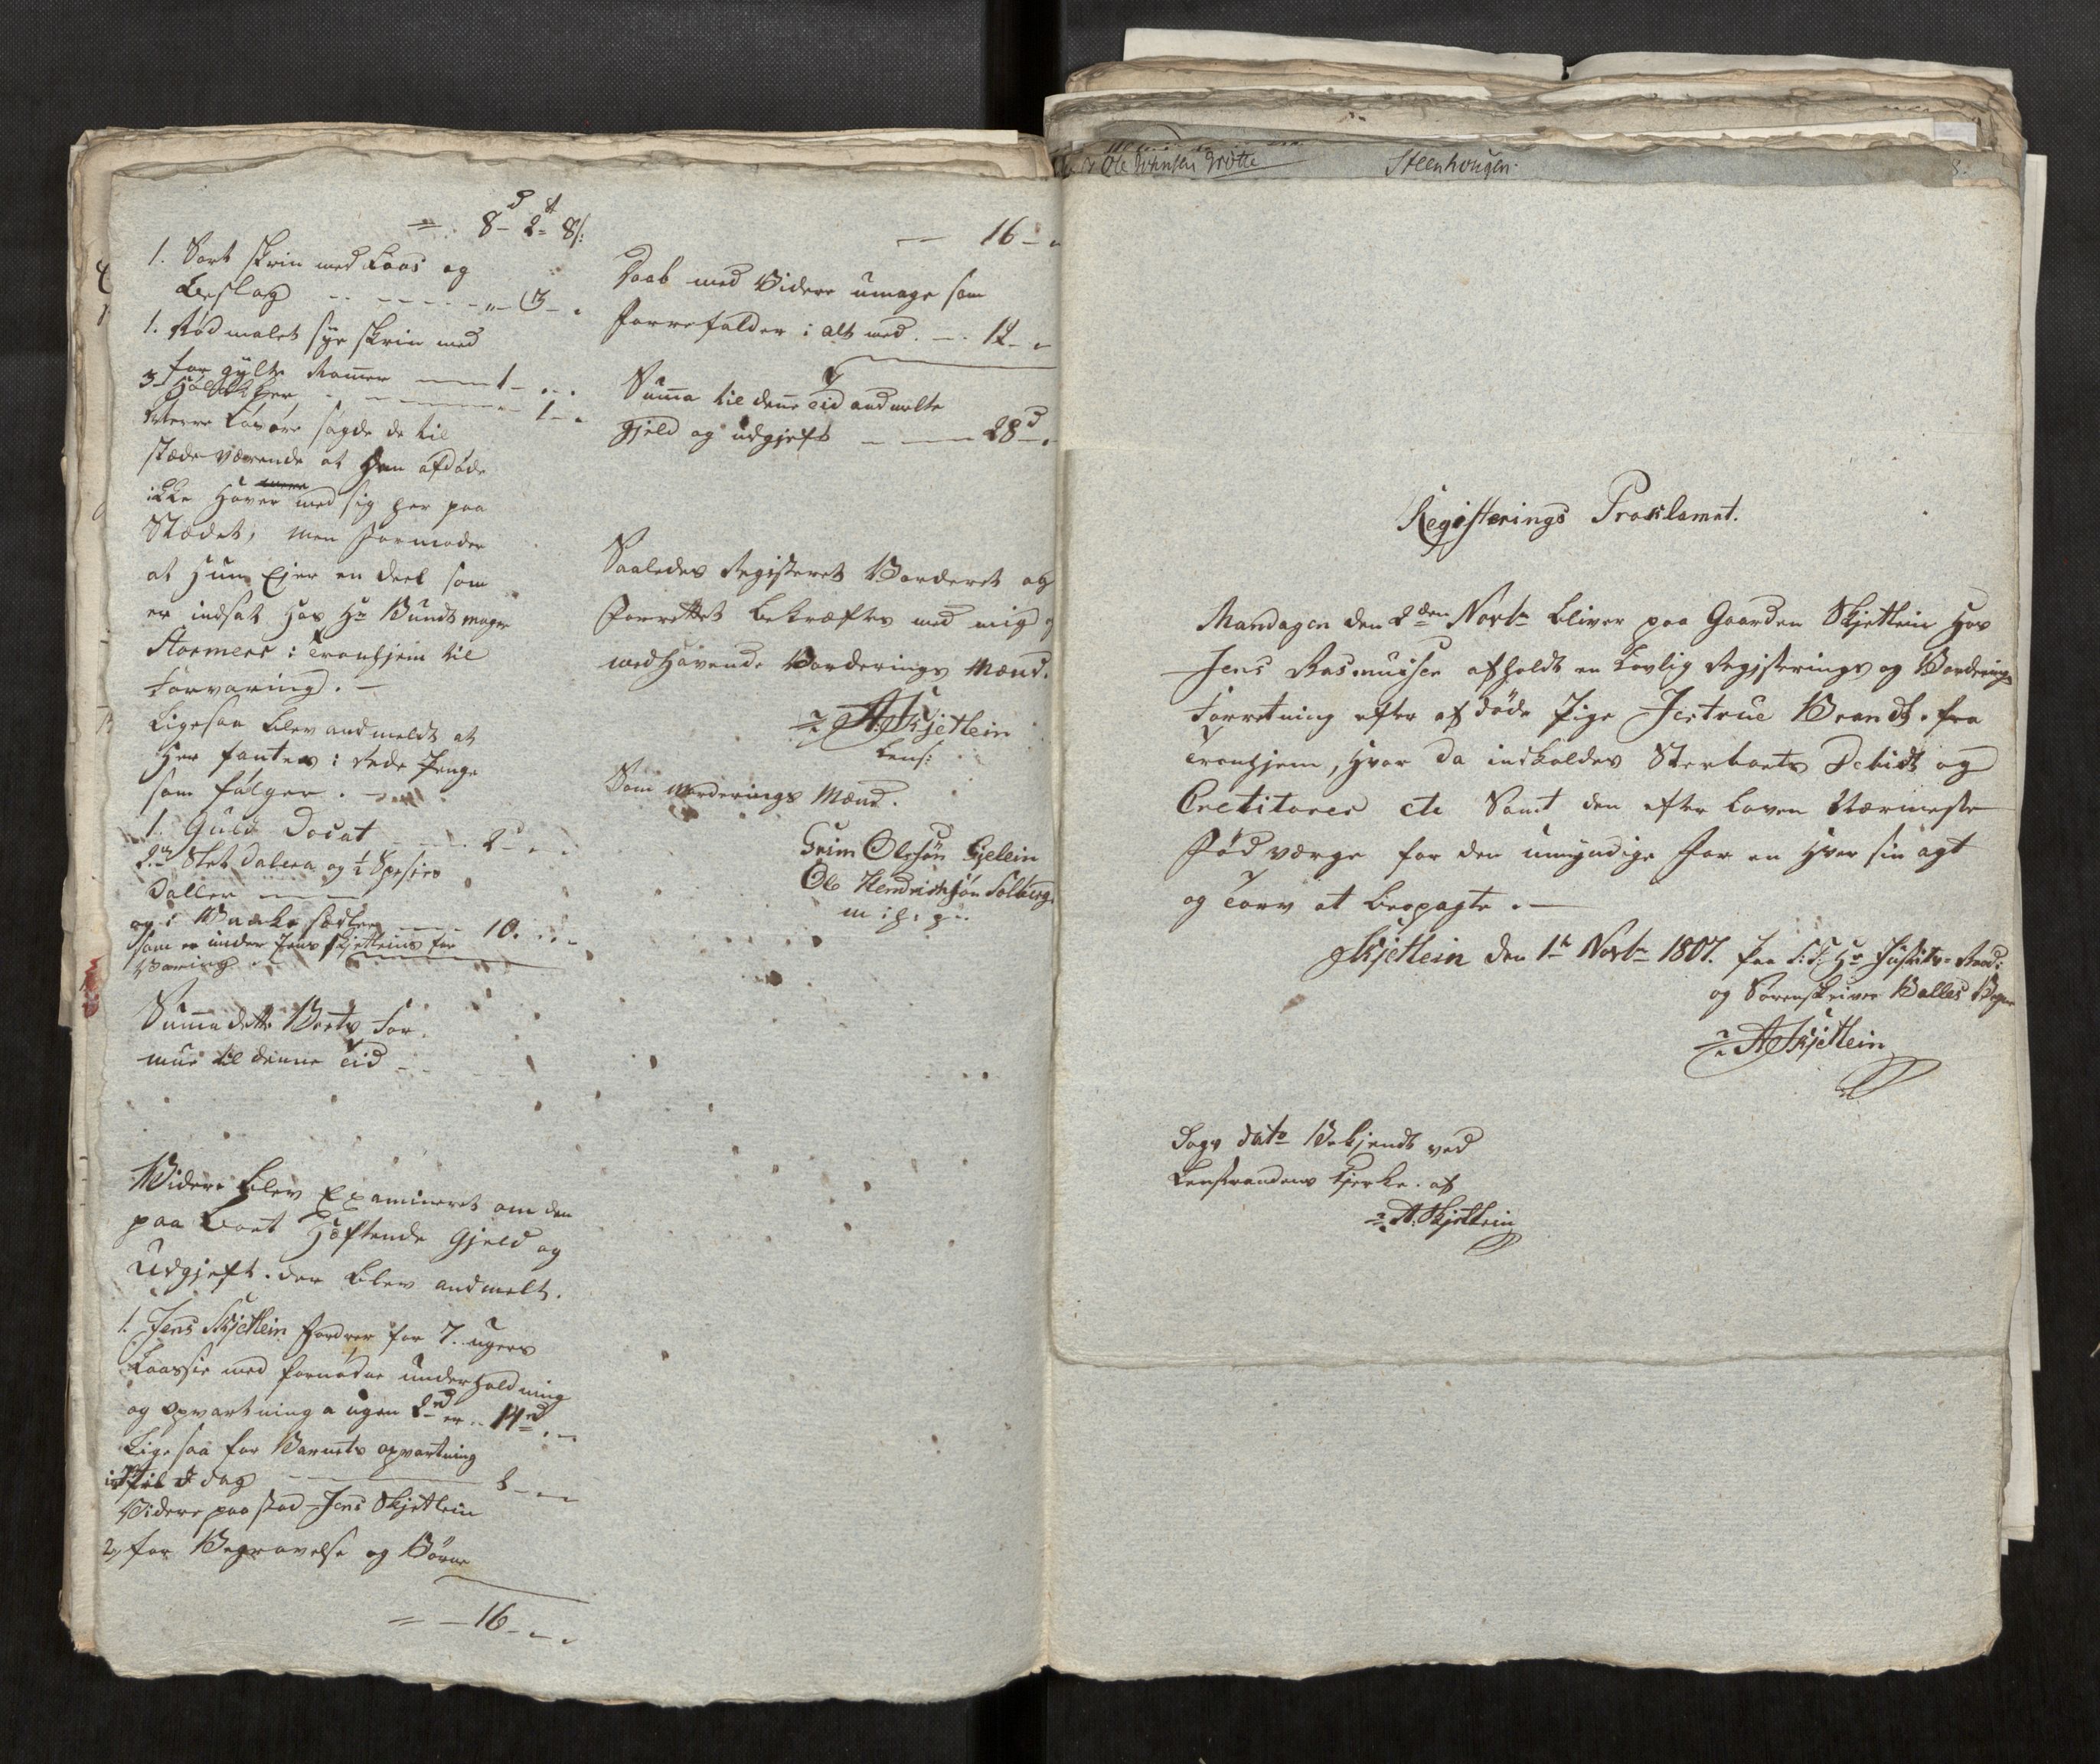 8 d 2 ß 8 /:
1. Sort skrin med Laas og
Beslag - - - - - 3 -
1. Rød malet sye skrin med
for gylte Ramer - - 1 -
3 - - - - - 1 -
Mere Løsøre sagde de til
stædeværende at den afdøde
ikke Haver med sig her paa
Stædet, men Formoder
at Hun Ejer en deel som
er indsat Hos Hr Bundtmager
Stormers i Tronhjem til
Forvaring. -
Ligesaa blev andmeldt at
Her fantes i rede Penge
som følger. -
1. Guld Docat - - - 2 -
og 1/2 Spesies
Daller - -
og i Banko sædler - - - 10.
som er under Jens Skjetleins for
Varing
Suma dette Boets For
mue til denne Tid - -
Videre blev Examineret om den
paa Boet Hæftende Gjeld og
Udgieft. der blev andmelt.
1. Jens Skjetlein Fordrer for 7. ugers
Laassie med fornødne underholdning
og opvartning a ugen 2 d er - 14 d -
Lige saa for Barnets opvartning
til d dag - - - 2 -
Videre paastod Jens Skjetlein
2, for Begravelse og Børne
16 - - -
16 -
Daab med Videre umage som
Forrefalder i alt med. - 12 -
Suma til denne Tid andmelte
gjeld og udgieft - - 28 d -
Saaledes Registeret Vorderet og
Forrettet bekræftes med mig og
medhavende Vorderings Mænd.
A. Skjetlein
Lens:
Som worderings Mænd.
Grim Olssøn Gjelein
Ole Hendrichsøn Solberg
m : h : p :
Ole Johnsen Grøtte
Steenhougen.
8.
Registerings Proklamat.
Mandagen den 2den Novbr bliver paa Gaarden Skjetlein Hos
Jens Rasmussen afholdt en Lovlig Registerings og Vorderings
Forretning efter af døde Pige Jertrue Brandt. fra
Tronhjem, Hvor da indkaldes Sterboets Debidt og
Cretitorer etc Samt den efter Loven Nærmeste
Fød værge for den umyndige For en Hver sin agt
og Tarv at beopagte. -
Skjetlein den 1te Novbr 1807. paa S: T: Hr Justits-Raad:
og Sorenskriver Balles Vegne
A Skjetlein
Dags dato Bekjendt ved
Lenstrandens Kjerke. af
A. Skjetlein